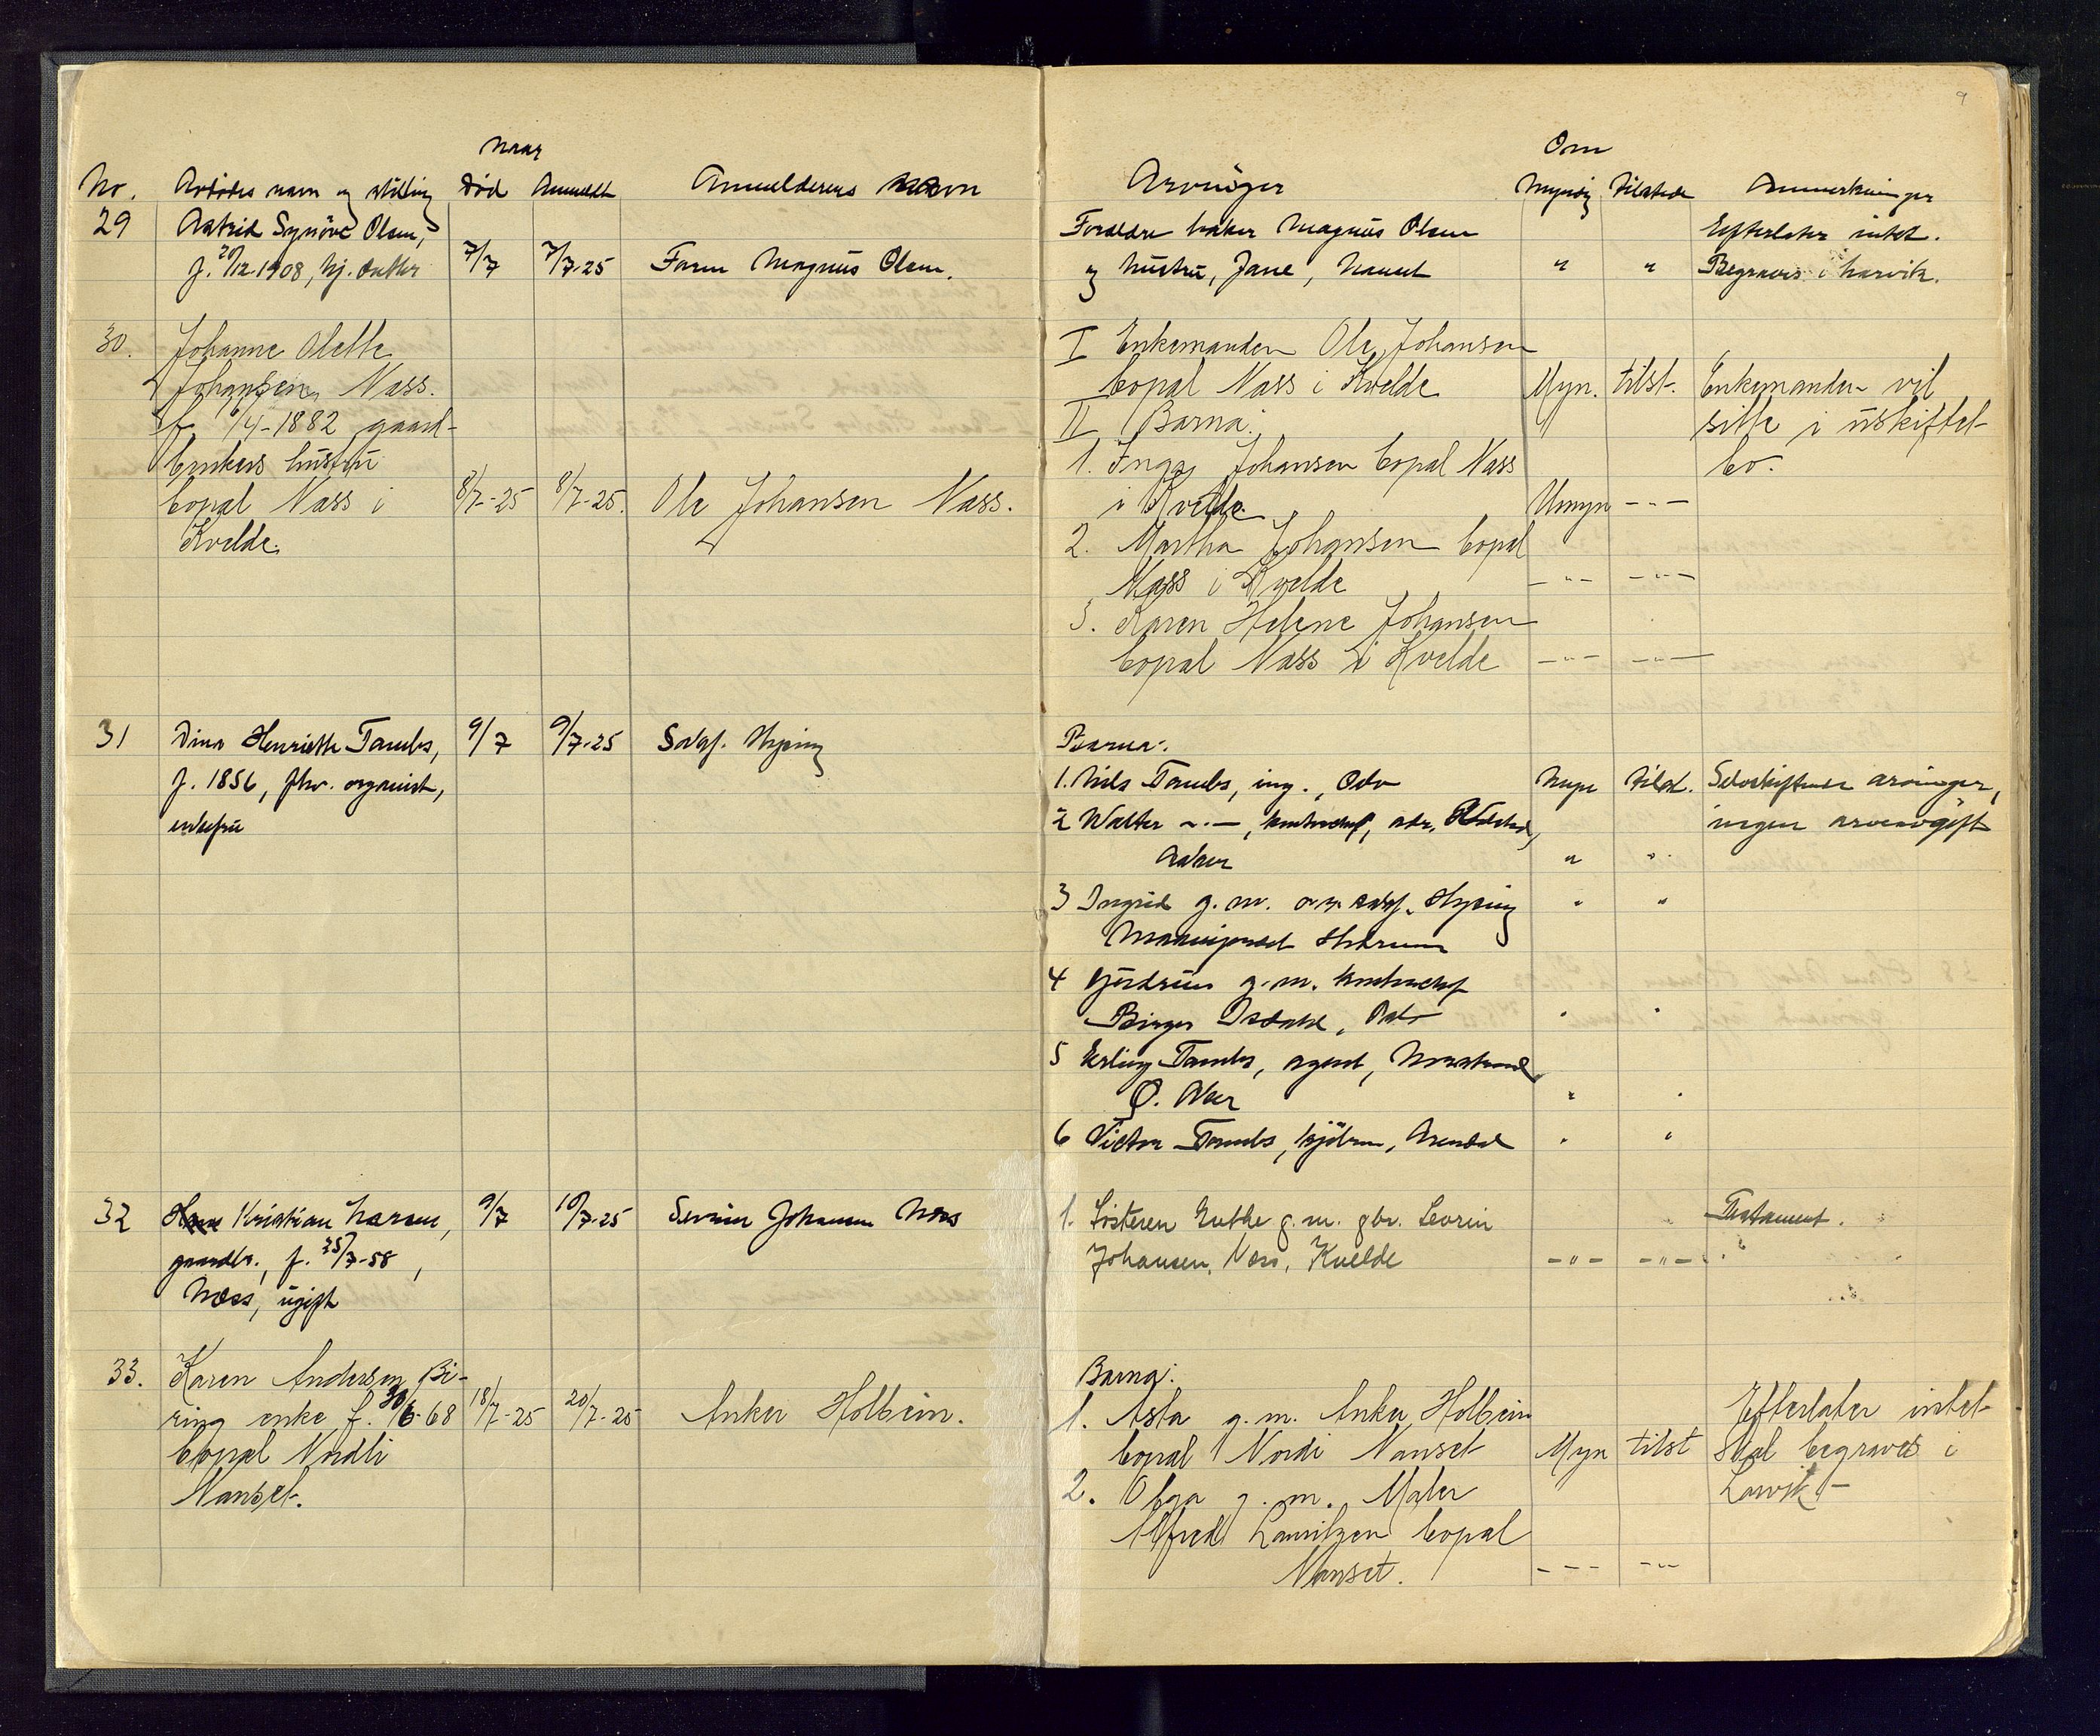 Naar
No. Avdødes navn og stilling Død Anmeldt Anmelderens navn
29 Astrid Synöve Olsen,
f. 20/12 1908, hj. datter 7/7 7/7-25 Faren Magnus Olsen.
30. Johanne Olette
Johansen, Næss.
f. 6/4-1882 gaard-
brukers hustru
bopal Næss i 8/7-25 8/7-25. Ole Johansen Næss.
Kvelde.
31 Dina Henriette Tambs, 9/7 9/7-25 Sakf. Hysing
f. 1856, fhv. organist,
enkefru
32 Kristian Larsen, 9/7 10/7-25 Sevrin Johansen Næss
gaardbr., f. 25/7-58,
Næss, ugift
33. Karen Andersen Bi-
ring enke f. 30/6-68 18/7-25 20/7-25 Anker Holbein.
bopal Nordli
Nanset.
9
Om
Arvinger Myndig tilstede Anmerkninger
Foreldre baker Magnus Olsen Efterlater intet.
og hustru, Jane, Nanset " " Begraves i Larvik.
I Enkemanden Ole Johansen
bopal Næss i Kvelde Myn. tilst. Enkemanden vil
II Barna: sitte i uskiftet
1. Inga Johansen bopal Næss bo.
i Kvelde. Umyn -"-
2. Martha Johansen bopal
Næss i Kvelde -"- -"-
3. Karen Helene Johansen
bopal Næss i Kvelde -"- -"-
Barna:
1. Nils Tambs, ing., Oslo Myn tilst. Selvskiftende arvinger,
2 Walter -"-, kontorchef, adr. ingen arveavgift
Aker " "
3 Ingrid g.m. o.r. sakf. Hysing " "
4 Gudrun g.m. kontorchef
Birger Isdahl, Oslo " "
5 Erling Tambs, agent, Nordstrand
Ø. Aker " "
6 Victor Tambs, kjöbm., Arendal " "
1. Søsteren Grethe g.m. gbr. Sevrin Testament.
Johansen, Næss, Kvelde -"- -"-
Barna:
1. Asta g.m. Anker Holbein Efterlater intet
bopal Nordi Nanset Myn tilst Skal begraves i
2. Olga g.m. Maler Larvik-
Alfred Lauritzen bopal
Nanset. -"- -"-